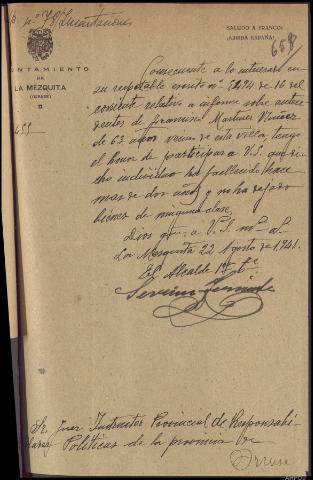 SALUDO A FRANCO:
¡ARRIBA ESPAÑA!
UNTAMIENTO
DE
LA MEZQUITA
(ORENSE)
Consecuente a lo interesado en
su respetable escrito nº 5274 de 16 del
corriente relativo a informe sobre antece-
dentes de Francisco Martinez
de 63 años vecino de esta villa, tengo
el honor de participar a V.S. que di-
cho individuo ha fallecido hace
mas de dos años y no ha dejado
bienes de ninguna clase.
Dios gue. a V.S. ms. as.
La Mezquita 22 Agosto de 1941.
El Alcalde
Sr. Juez Instructor Provincial de Responsabi-
Politicas de la provincia de
Orense